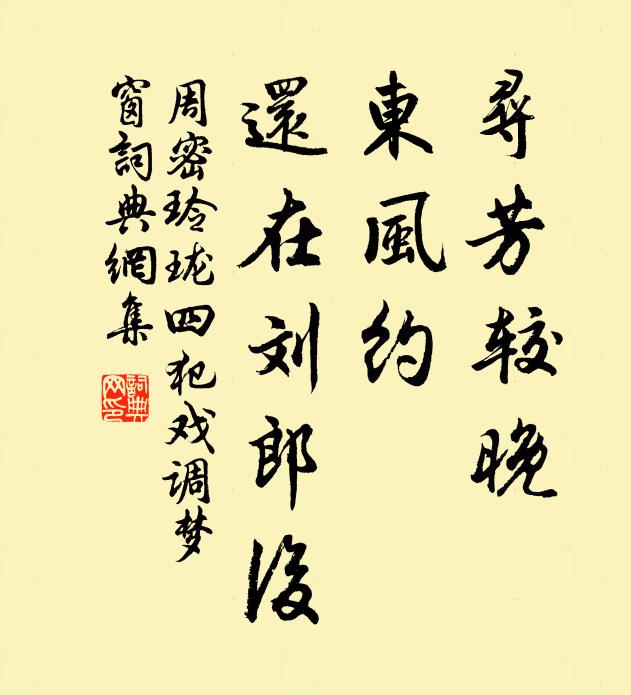 尋芳较晚
東風约
還在刘郎後
周密玲珑四犯戏调梦
窗詞典網集
詞典
网印